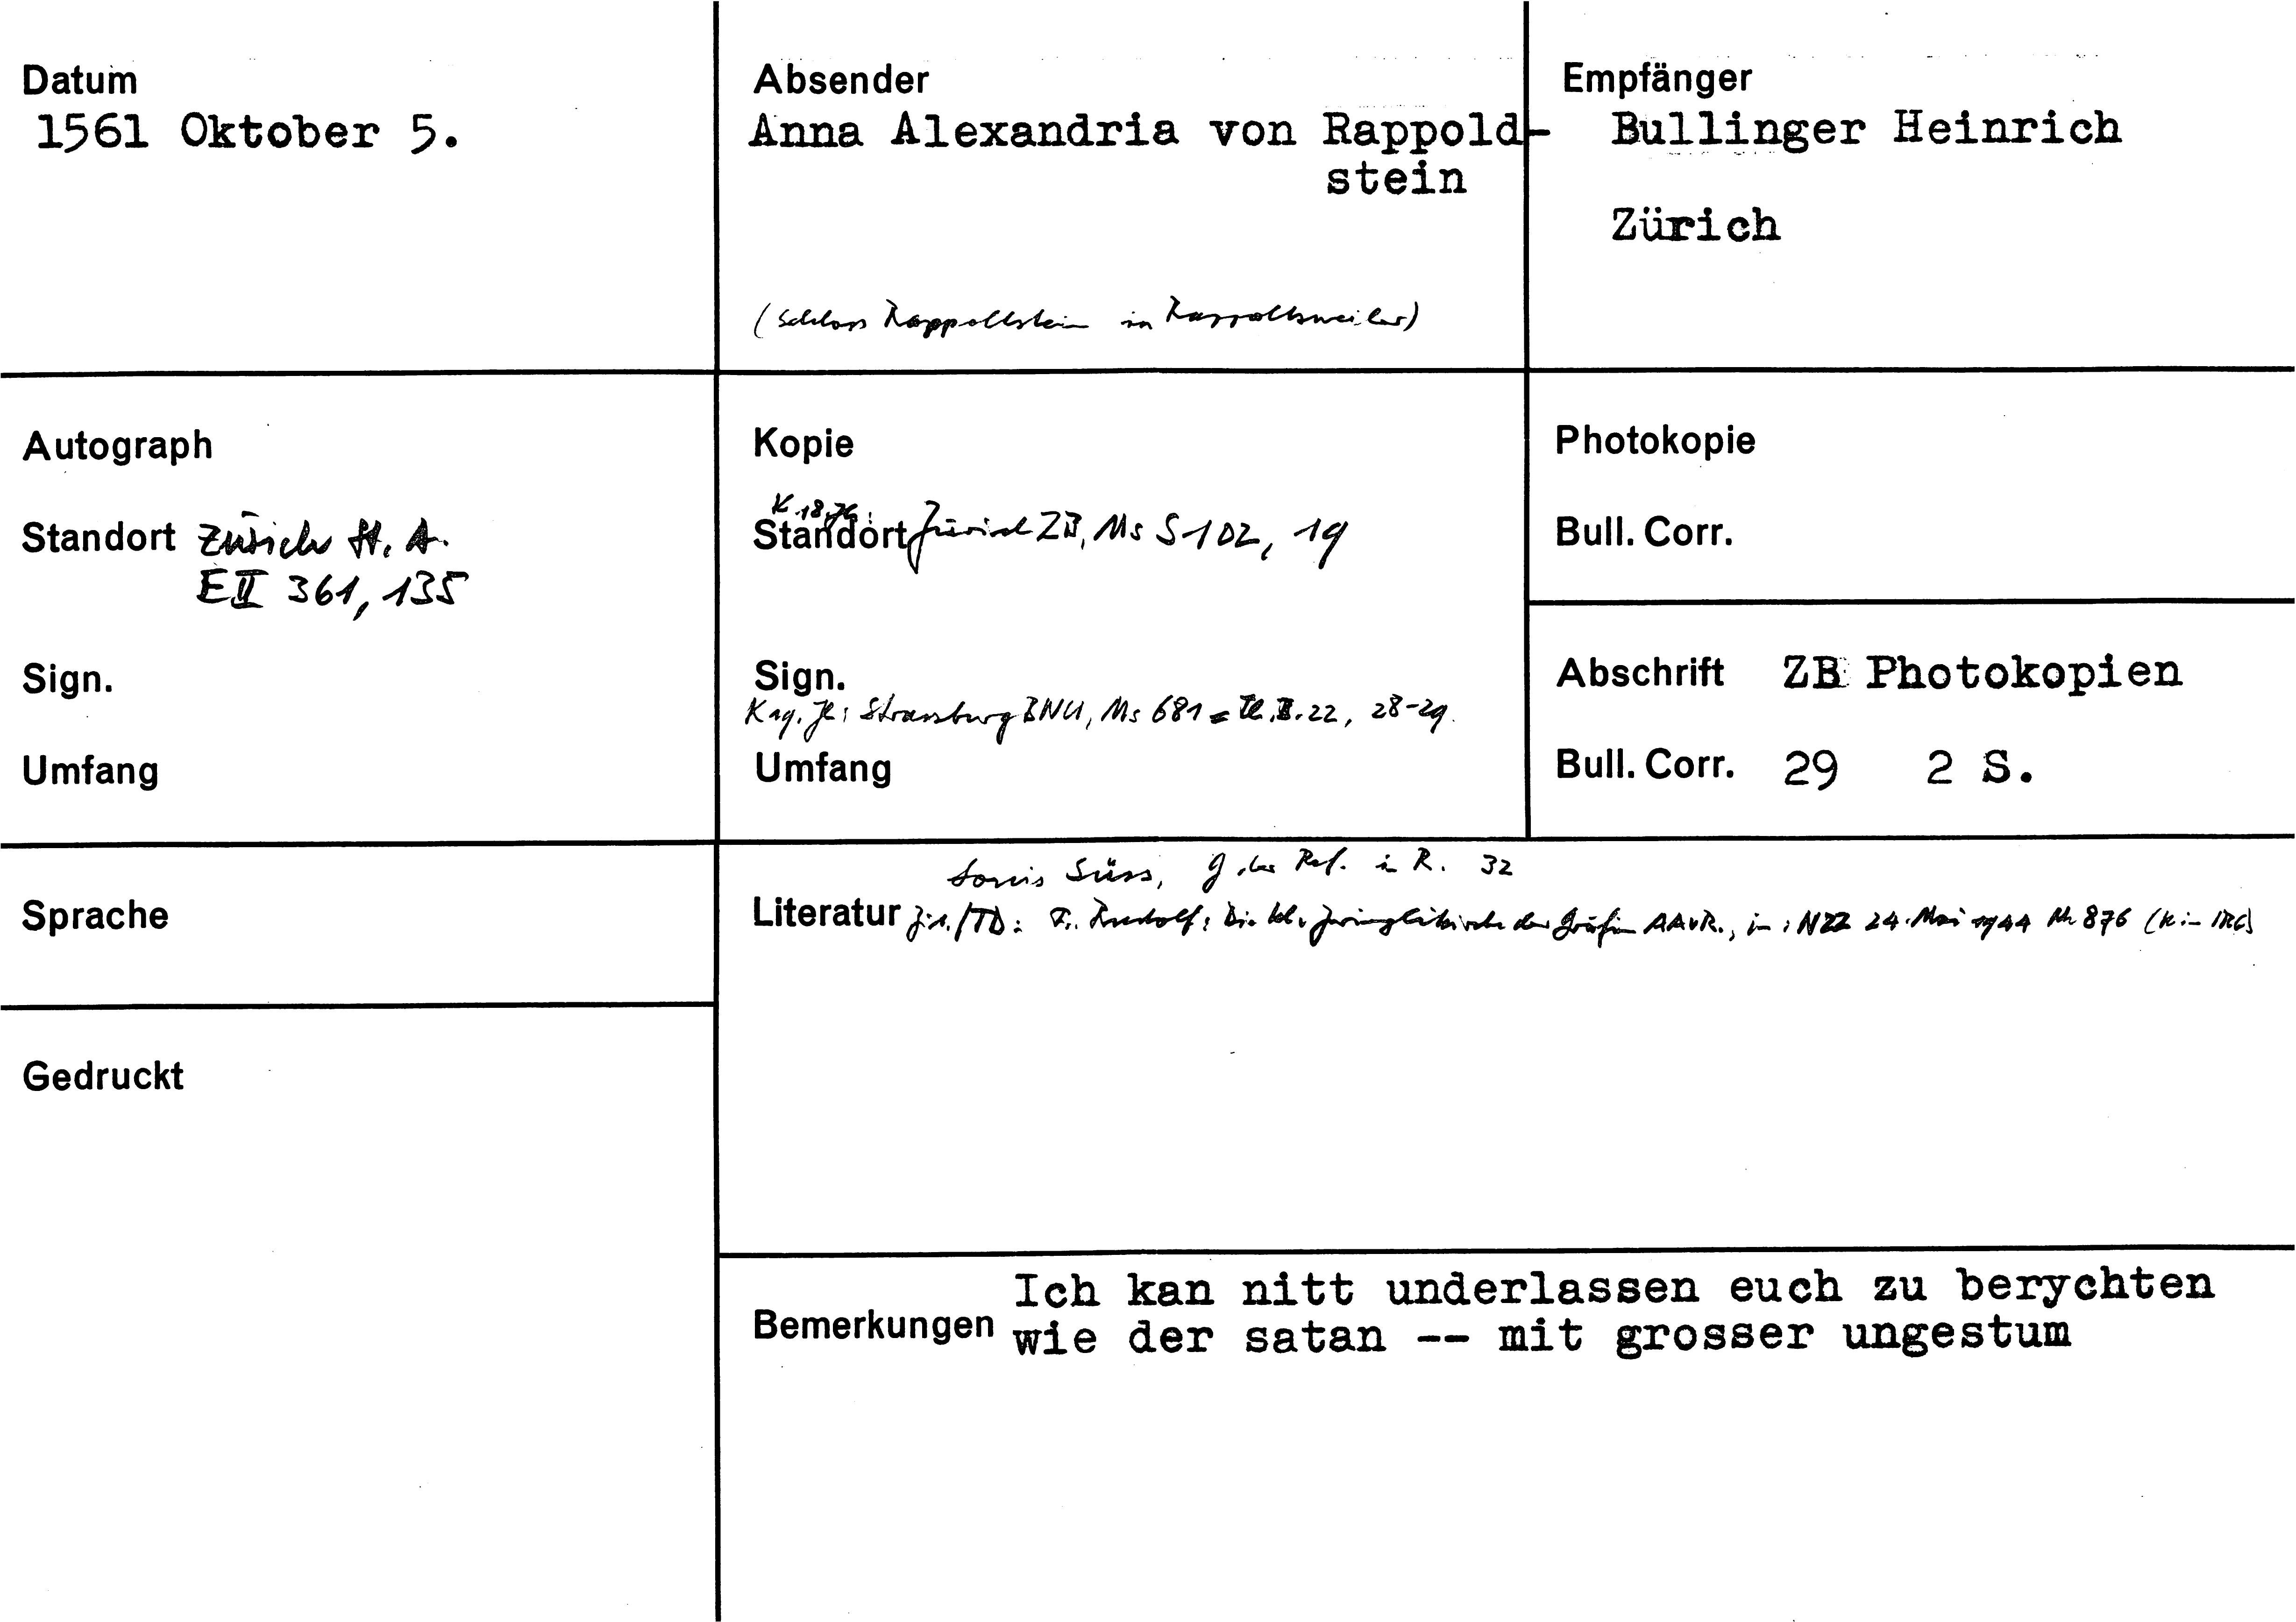 Datum
1561 Oktober 5.
Absender
Anna Alexandria von Rappold-
stein
(Schloss Rappoltstein in Rappoltsweiler)
Empfänger
Bullinger Heinrich
Zürich
Autograph
Standort Zürich St. A.
E II 361, 135
Sign.
Umfang
Kopie
K. 18. Jh.:
Standort Zürich ZB, Ms S 102, 19
Sign.
Strassburg BNU, Ms 681 = 22, 28-29.
Umfang
Photokopie
Bull. Corr.
Abschrift ZB Photokopien
Bull. Corr. 29 2 S.
Sprache
Gedruckt
Louis Süss, G der Ref. in R. 32
Literatur Zit./TD: Fr. Rudolf: Die kl. Zwinglikirche der Gräfin AAvR., in: NZZ 24. Mai 1944 Nr 876 (K in IRG)
Bemerkungen
Ich kan nitt underlassen euch zu berychten
wie der satan -- mit grosser ungestum